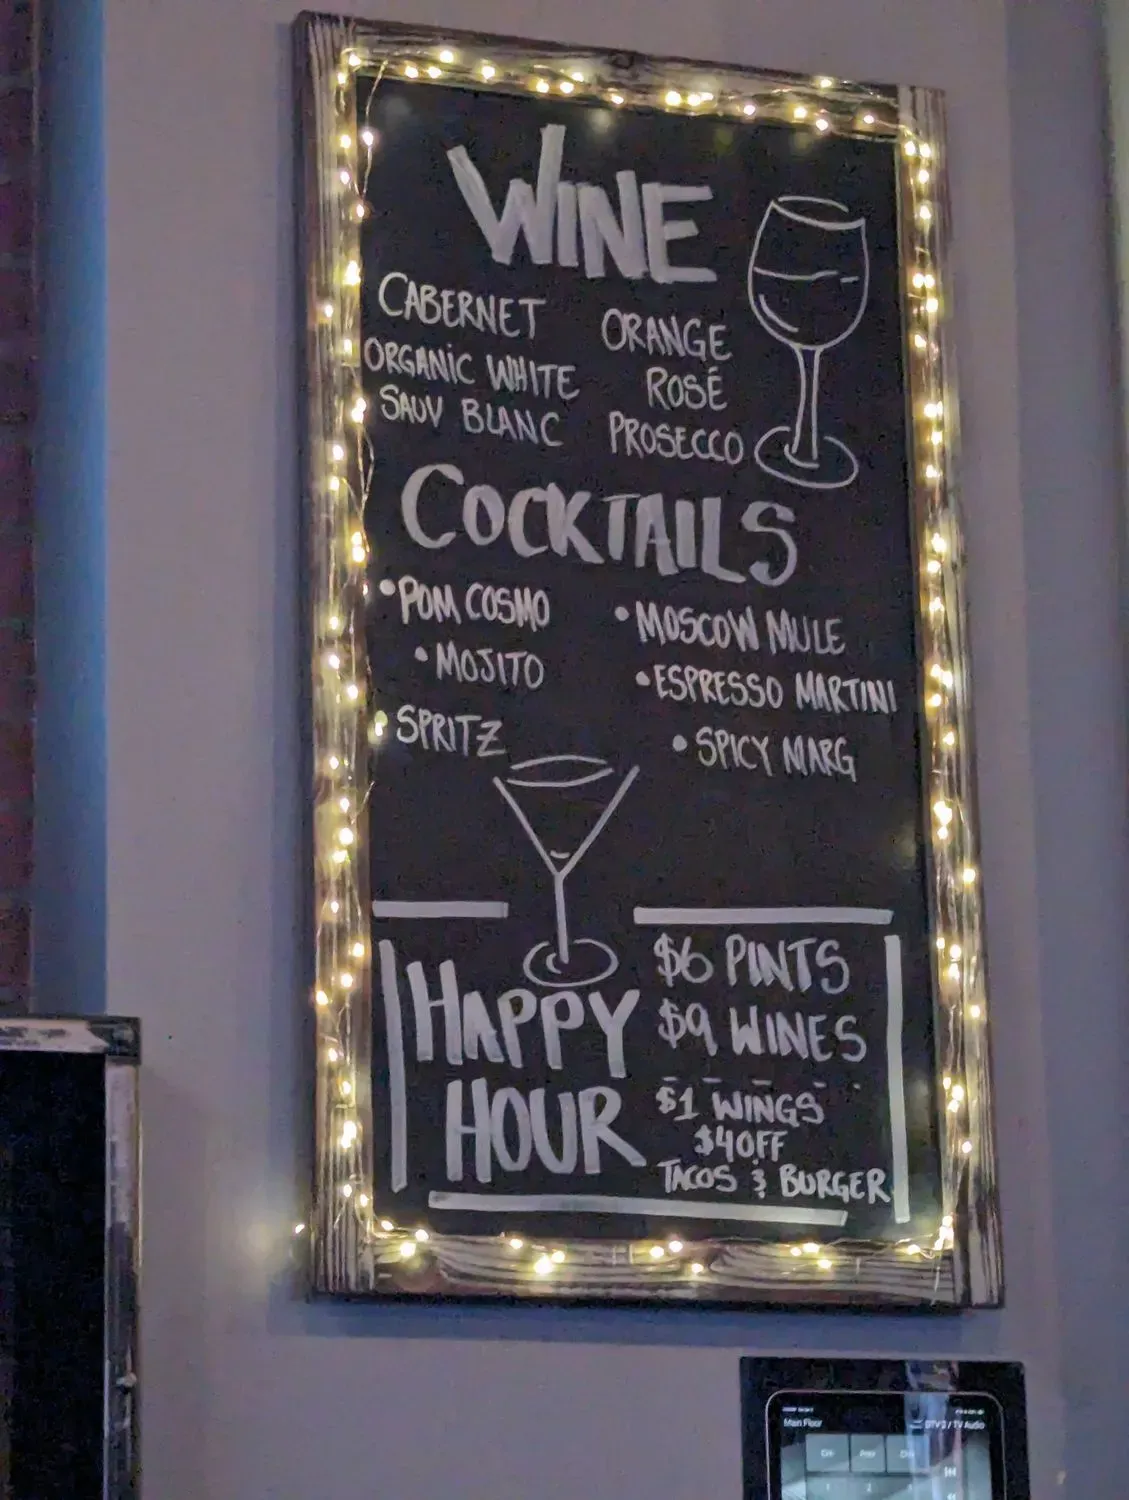 WINE
CABERNET
ORGANIC WHITE
SAUV BLANC
ORANGE
ROSÉ
PROSECCO
COCKTAILS
• POM COSMO
• MOJITO
• SPRITZ
• MOSCOW MULE
• ESPRESSO MARTINI
• SPICY MARG
HAPPY
HOUR
$6 PINTS
$9 WINES
$1 WINGS
$4 OFF
TACOS & BURGER
Main Floor